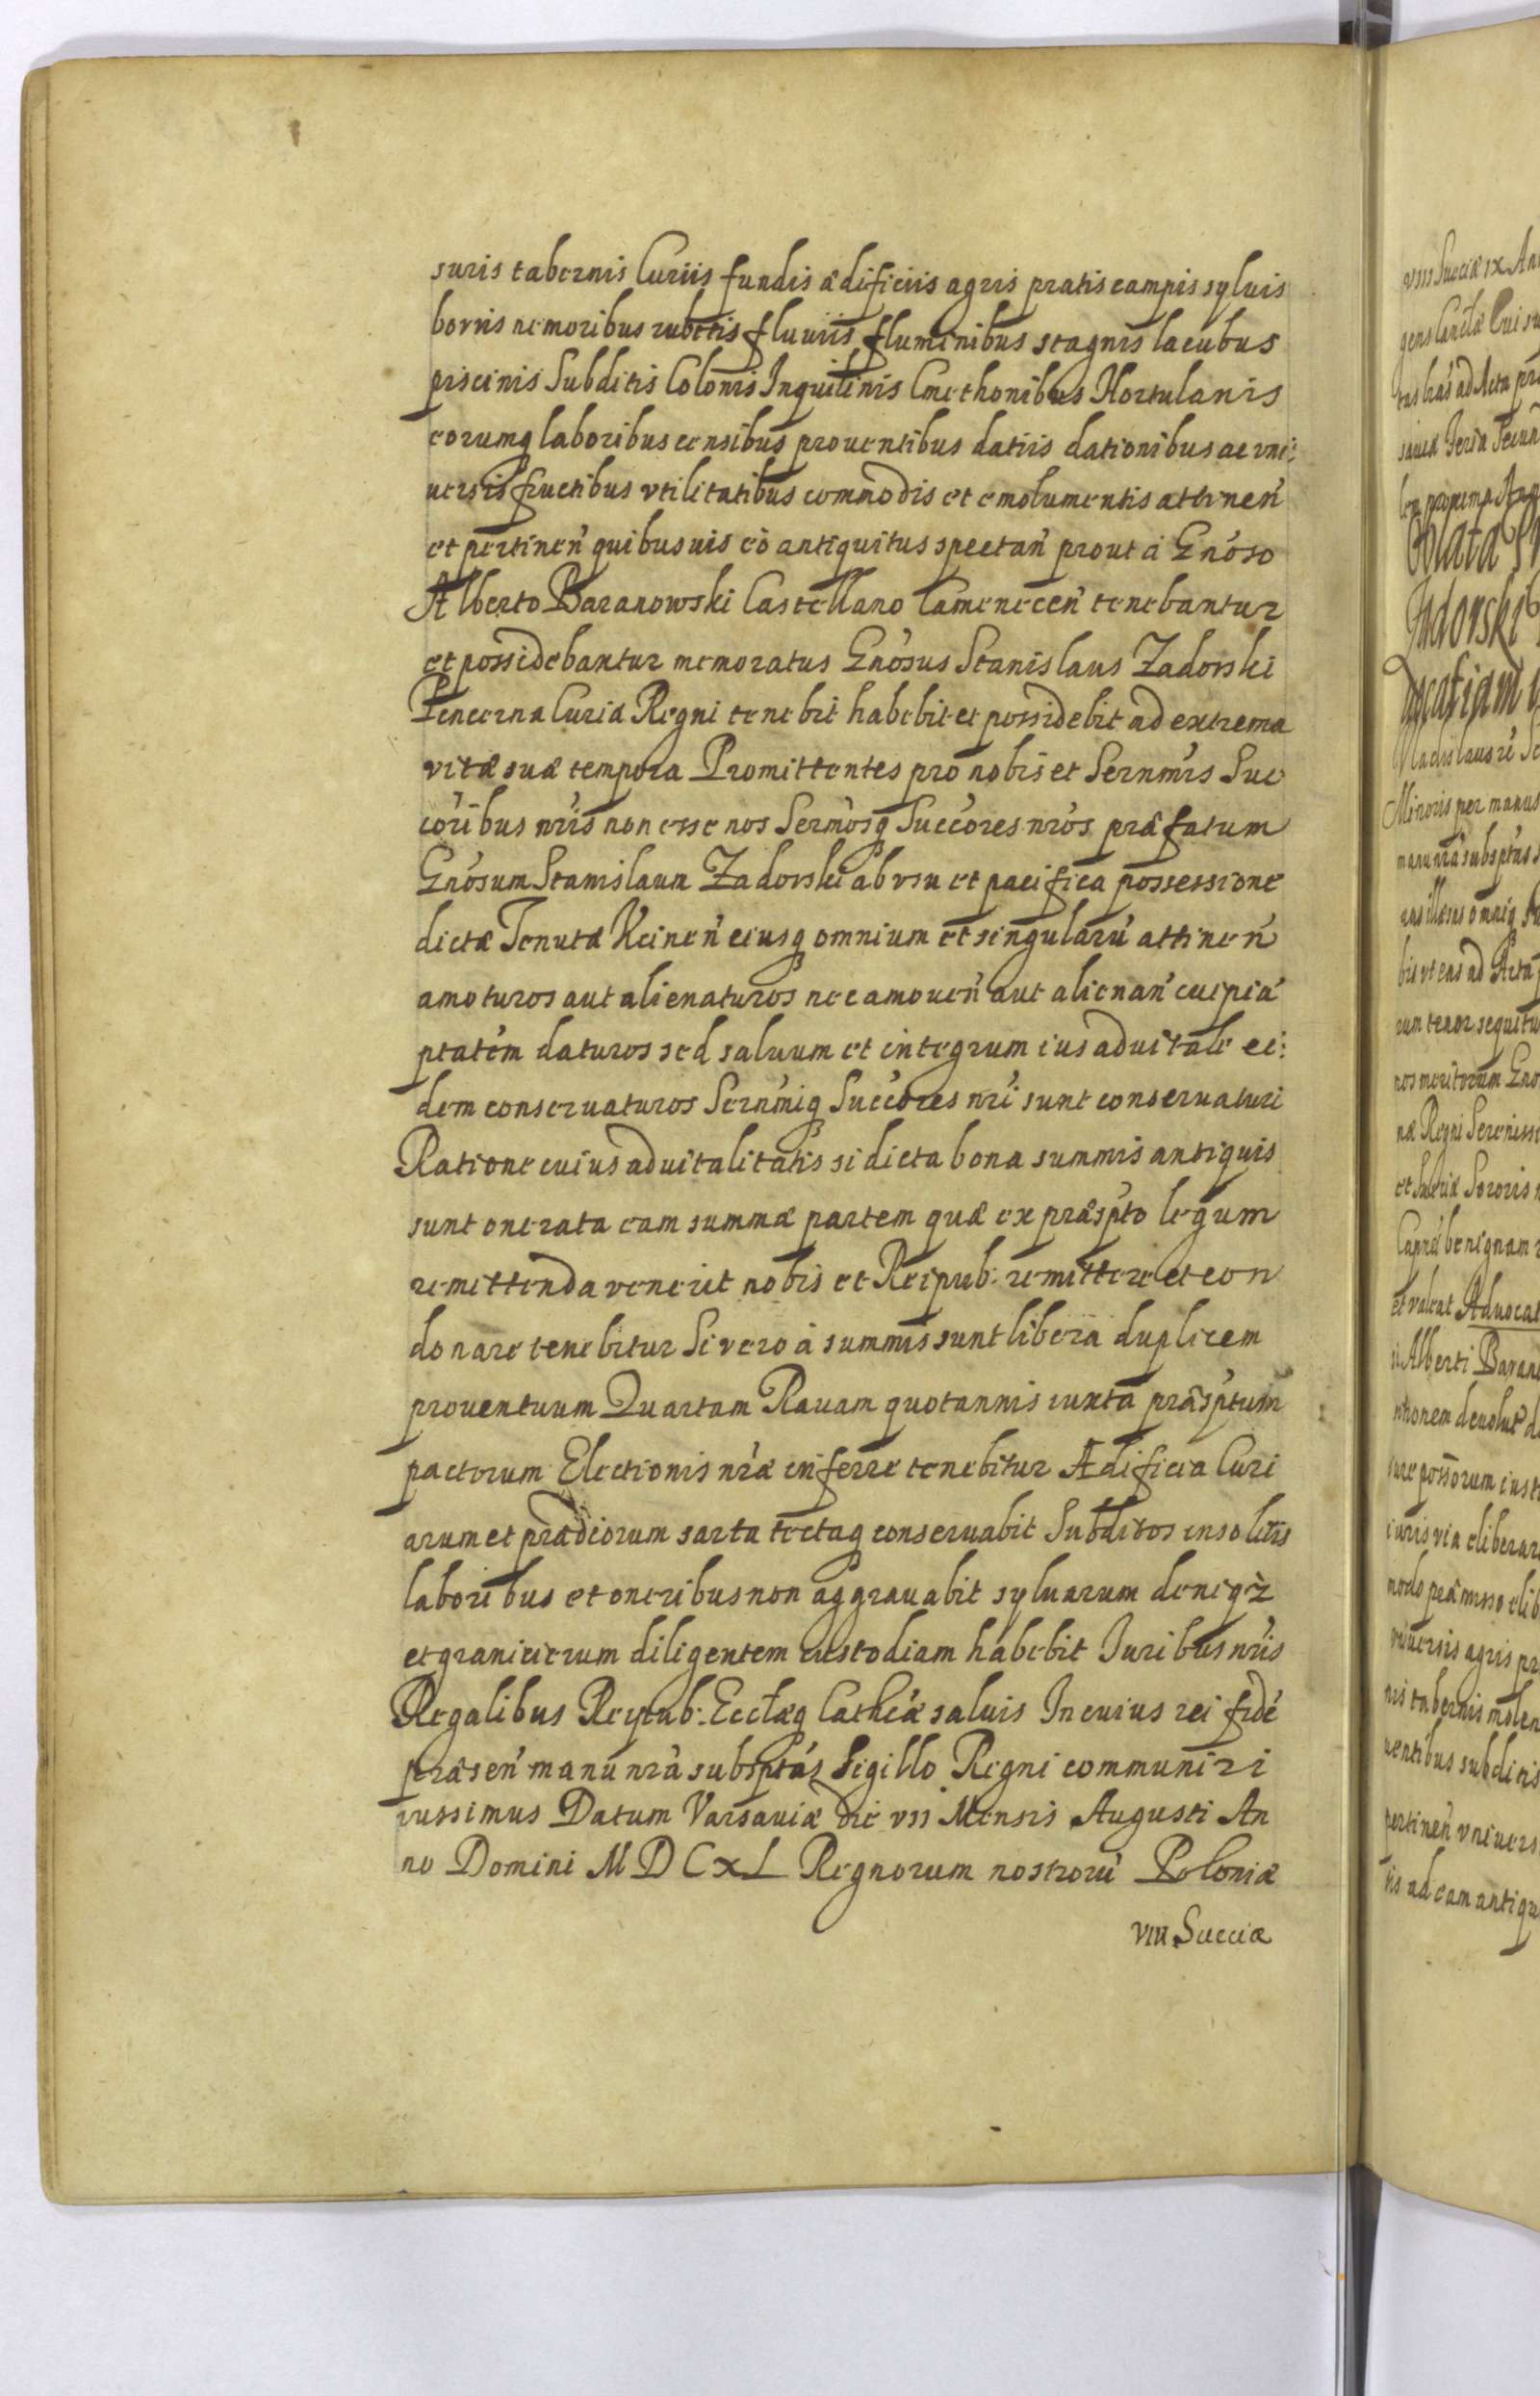 suris tabernis Curiis fundis ædificiis agris pratis campis syluis
borris nemoribus rubetis fluuiis fluminibus stagnis lacubus
piscinis Subditis Colonis Inquilinis Cmethonibus Hortulanis
eorumq laboribus censibus prouentibus datiis dationibus ac vni:
uersis fructibus vtilitatibus commodis et emolumentis attinen̄
et pertinen̄ quibusuis eò antiquitus spectan̄ prout à Gnoso
Alberto Baranowski Castellano Camenecen̄ tenebantur
et possidebantur memoratus Gnosus Stanislaus Zadorski
Pincerna Curiæ Regni tenebit habebit et possidebit ad extrema
vitæ suæ tempora Promittentes pro nobis et Sernmis Suc
coribus nris non esse nos Sermosq Succores nros præfatum
Gnosum Stanislaum Zadorski ab vsu et pacifica possessione
dictæ Tenutæ Kcinen̄ eiusq omnium et singularū attinen̄
amoturos aut alienaturos nec amouen̄ aut alienan̄ cuipiā
ptatem daturos sed saluum et integrum ius aduitale ei:
dem conseruaturos Sernmiq Succores nri sunt conseruaturi
Ratione cuius aduitalitatis si dicta bona summis antiquis
sunt onerata eam summæ partem quæ ex præspto legum
remittenda venerit nobis et Reipub: remittere et con
donare tenebitur Si vero à summis sunt libera duplicem
prouentuum Quartam Rauam quotannis iuxta præsptum
pactorum Electionis nræ inferre tenebitur Ædificia Curi
arum et prædiorum sarta tectaq conseruabit Subditos insolitis
laboribus et oneribus non aggrauabit syluarum deniqz
et granicierum diligentem custodiam habebit Iuribus nris
Regalibus Reipub: Ecclæq Cathcæ saluis In cuius rei fidē
præsen̄ manu nra subsptas Sigillo Regni communiri
iussimus Datum Varsauiæ die vii Mensis Augusti An
no Domini MDCXL Regnorum nostrorū Poloniæ
viii Sueciæ